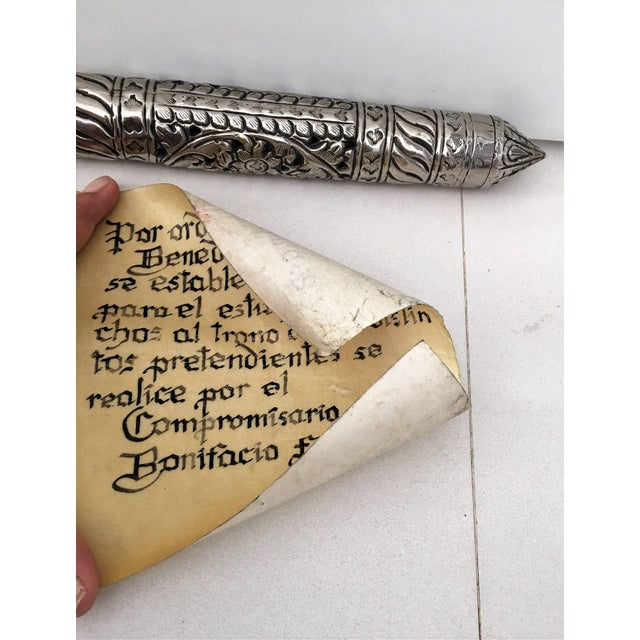 Por
Bened
se estable
para el
chos al trono
tos pretendientes se
realice por el
Compromisario
Bonifacio